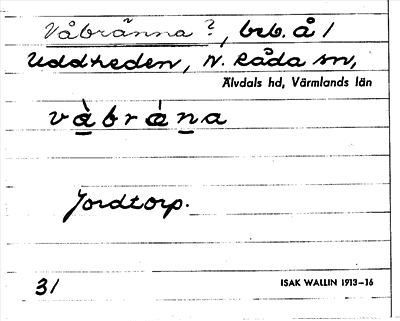 Våbränna?, beb. å /
Uddheden, N. Råda sn,
Älvdals hd, Värmlands län
vàbràna
Jordtorp.
31 ISAK WALLIN 1913–16